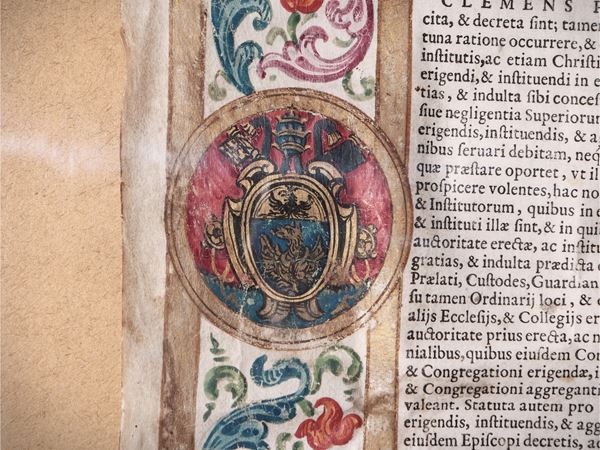 CLEMENS P
cita, & decreta ſint; tamen
tuna ratione occurrere, &
inſtitutis, ac etiam Chriſti
erigendi, & inſtituendi in e
tias, & indulta ſibi conceſ
ſiue negligentia Superiorum
erigendis, inſtituendis, & a
nibus ſeruari debitam, neq
quæ præſtare oportet, vt il
proſpicere volentes, hac no
& Inſtitutorum, quibus in e
& inſtituti illæ ſint, & in qui
auctoritate erectæ, ac inſtitu
gratias, & indulta prædicta
Prælati, Cuſtodes, Guardian
ſu tamen Ordinarij loci, & c
alijs Eccleſijs, & Collegijs er
auctoritate prius erecta, ac n
nialibus, quibus eiuſdem Con
& Congregationi erigendæ, i
& Congregationi aggreganti
valeant. Statuta autem pro
erigendis, inſtituendis, & agg
eiuſdem Epiſcopi decretis, ac